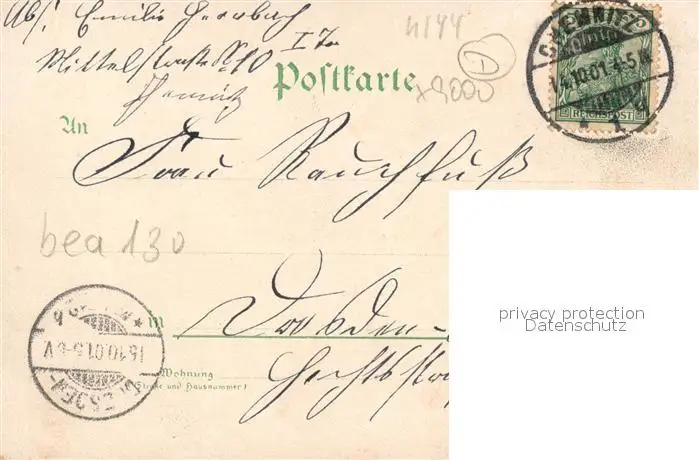 Abs. Emilie
Mittelstraße No 10 I Tr
Chemnitz
4144
D
x9000
Postkarte
CHEMNITZ
14.10.01. 4-5 N
1
REICHSPOST
An
Frau Rauchfuß
bea 130
in Dresden-
DRESDEN-
15.10.01. 5-6 V
Wohnung
(Straße und Hausnummer)
Hechtstra
privacy protection
Datenschutz